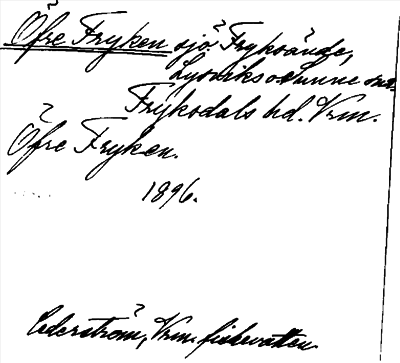 Öfre Fryken sjö Fryksände,
Lysviks o Sunne snr
Frykdals hd. Vrm.
Öfre Fryken.
1896.
Cederström, Vrm. fiskevatten